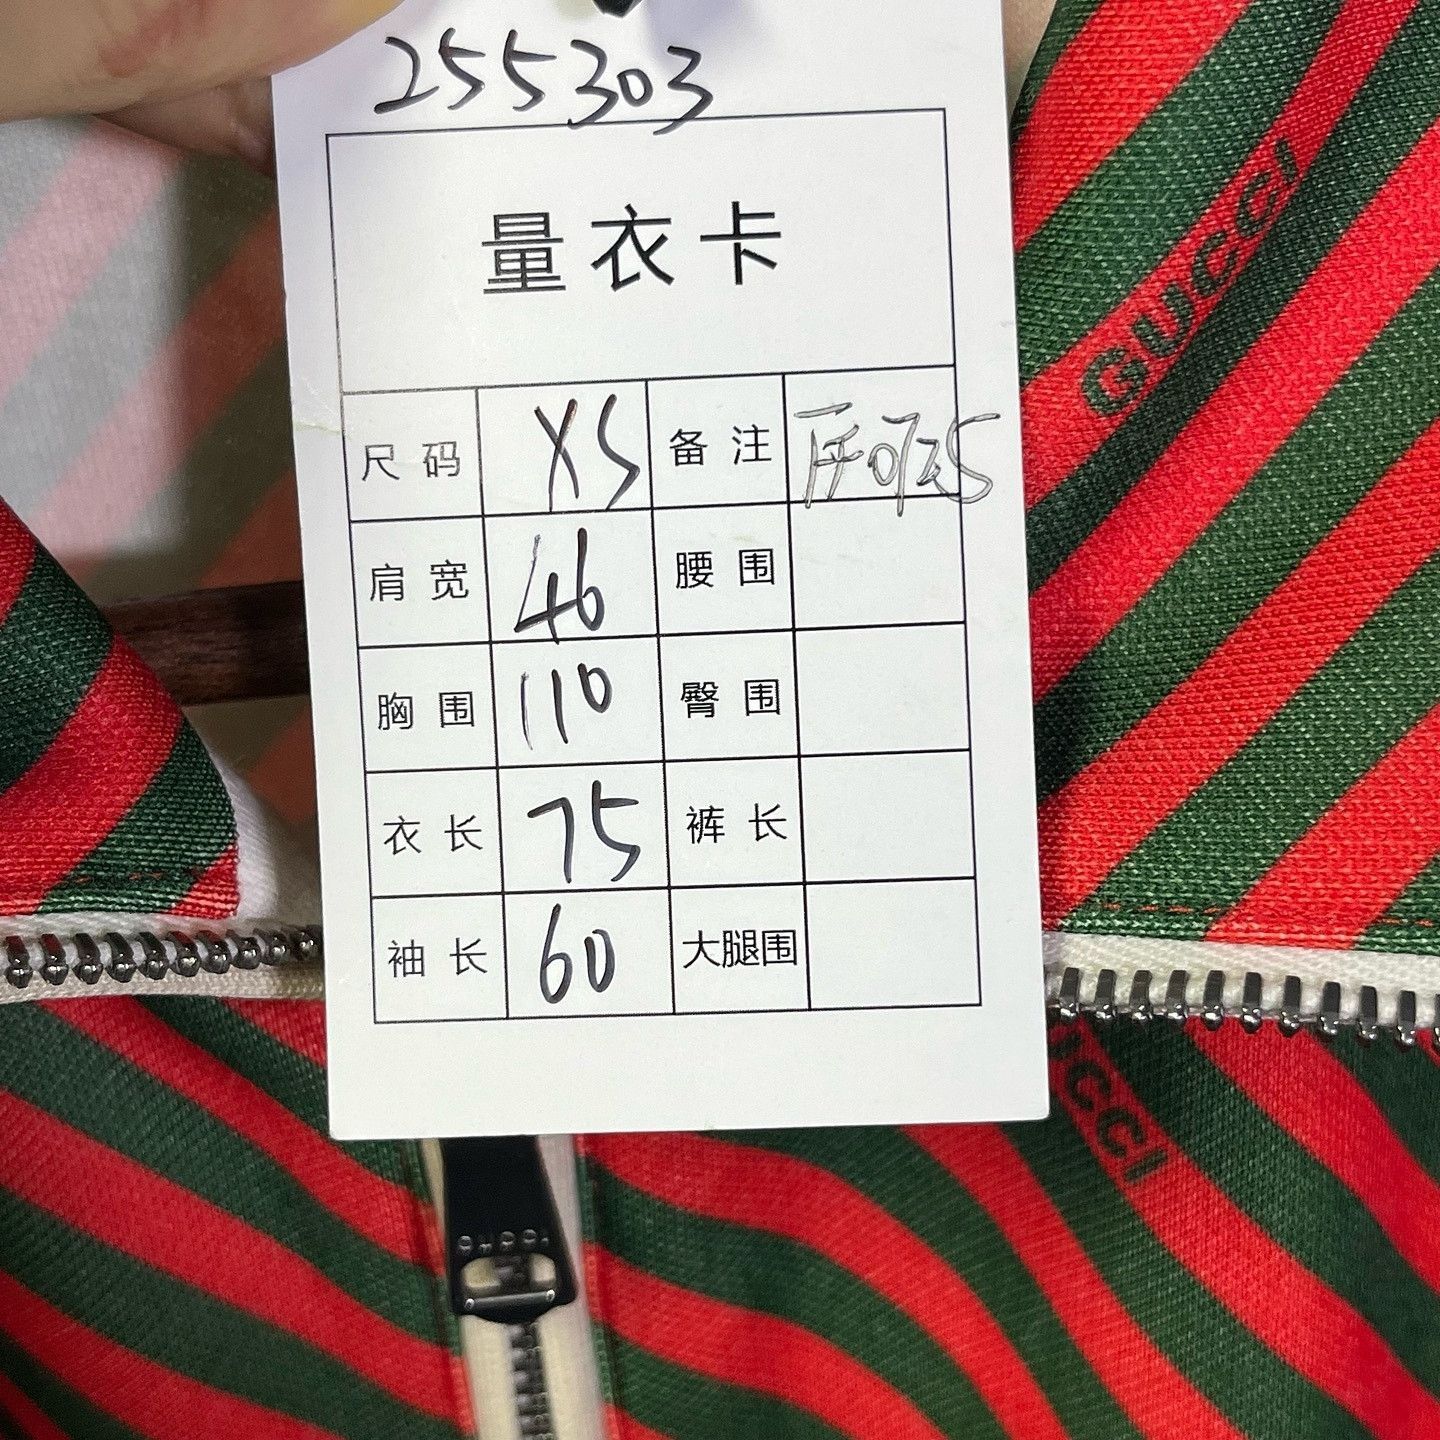 255303
量衣卡
尺码 XS 备注
肩宽 46 腰围
胸围 110 臀围
衣长 75 裤长
袖长 60 大腿围
GUCCI
UCCI
GUCCI